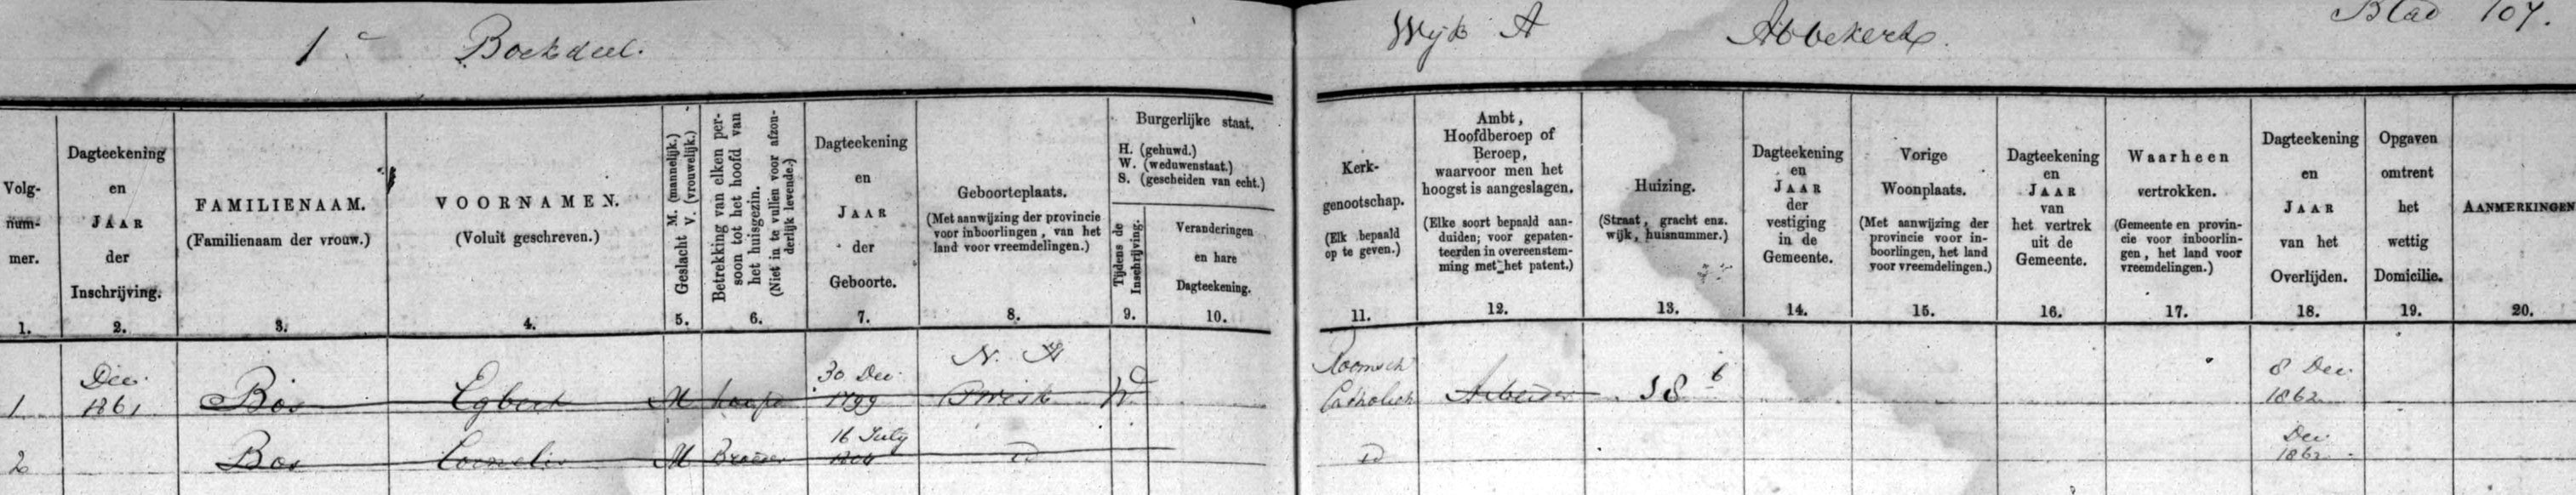 1e Boekdeel.
Wijk A Abbekerk. Blad 107.
Volg-
num-
mer.
1.
Dagteekening
en
JAAR
der
Inschrijving.
2.
FAMILIENAAM.
(Familienaam der vrouw.)
3.
VOORNAMEN.
(Voluit geschreven.)
4.
Geslacht M. (mannelijk.)
V. (vrouwelijk.)
5.
Betrekking van elken per-
soon tot het hoofd van
het huisgezin.
(Niet in te vullen voor afzon-
derlijk levende.)
6.
Dagteekening
en
JAAR
der
Geboorte.
7.
Geboorteplaats.
(Met aanwijzing der provincie
voor inboorlingen, van het
land voor vreemdelingen.)
8.
Burgerlijke staat.
H. (gehuwd.)
W. (weduwenstaat.)
S. (gescheiden van echt.)
Tijdens de
Inschrijving.
9.
Veranderingen
en hare
Dagteekening.
10.
Kerk-
genootschap.
(Elk bepaald
op te geven.)
11.
Ambt,
Hoofdberoep of
Beroep,
waarvoor men het
hoogst is aangeslagen.
(Elke soort bepaald aan-
duiden; voor gepaten-
teerden in overeenstem-
ming met het patent.)
12.
Huizing.
(Straat, gracht enz.
wijk, huisnummer.)
13.
Dagteekening
en
JAAR
der
vestiging
in de
Gemeente.
14.
Vorige
Woonplaats.
(Met aanwijzing der
provincie voor in-
boorlingen, het land
voor vreemdelingen.)
15.
Dagteekening
en
JAAR
van
het vertrek
uit de
Gemeente.
16.
Waarheen
vertrokken.
(Gemeente en provin-
cie voor inboorlin-
gen, het land voor
vreemdelingen.)
17.
Dagteekening
en
JAAR
van het
Overlijden.
18.
Opgaven
omtrent
het
wettig
Domicilie.
19.
AANMERKINGEN
20.
1 Dec. 1861 Bos Egbert M hoofd 30 Dec. 1799 N. H. Twisk W Roomsch Catholiek Arbeider 58 b 8 Dec. 1862
2 Bos Cornelis M Broeder 16 July id id Dec 1862